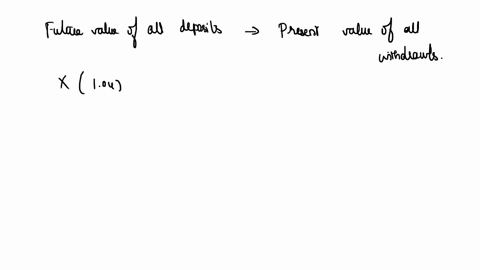 Future value of all deposits → Present value of all
withdrawls.
X ( 1.04)